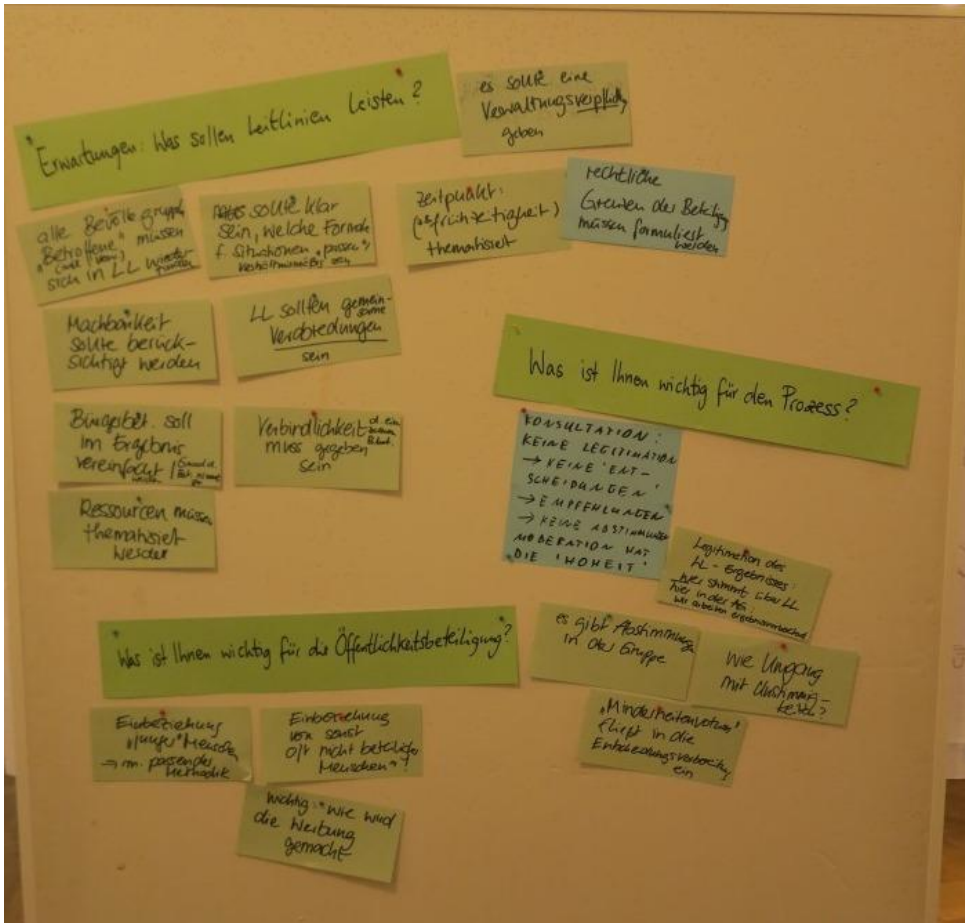 Erwartungen: Was sollen Leitlinien leisten?
es sollte eine
Verwaltungsverpflichtg
geben
alle Bevölk.gruppen
"Betroffene" müssen
sich in LL wieder-
finden
sollte klar
sein, welche Formate
f. Situationen "passen"
verhältnismäßig sein
Zeitpunkt:
(Frühzeitigkeit)
thematisiert
rechtliche
Grenzen der Beteilig.
müssen formuliert
werden
Machbarkeit
sollte berück-
sichtigt werden
LL sollten gemein-
same
Verabredungen
sein
Bürgerbet. soll
im Ergebnis
vereinfacht
werden
Verbindlichkeit
muss gegeben
sein
Ressourcen müssen
thematisiert
werden
Was ist Ihnen wichtig für den Prozess?
KONSULTATION:
KEINE LEGITIMATION
→ KEINE 'ENT-
SCHEIDUNGEN'
→ EMPFEHLUNGEN
→ KEINE ABSTIMMUNGEN
MODERATION HAT
DIE 'HOHEIT'
Legitimation des
LL-Ergebnisses:
wer stimmt über LL
hier in der AG.
wir arbeiten ergebnisvorbereitend
es gibt Abstimmung
in der Gruppe
Wie Umgang
mit Unstimmig-
keiten?
"Minderheitenvotum"
fließt in die
Entscheidungsvorbereitung
ein
Was ist Ihnen wichtig für die Öffentlichkeitsbeteiligung?
Einbeziehung
"junger" Menschen
→ m. passender
Methodik
Einbeziehung
von sonst
oft nicht beteiligter
Menschen?
wichtig: wie wird
die Werbung
gemacht